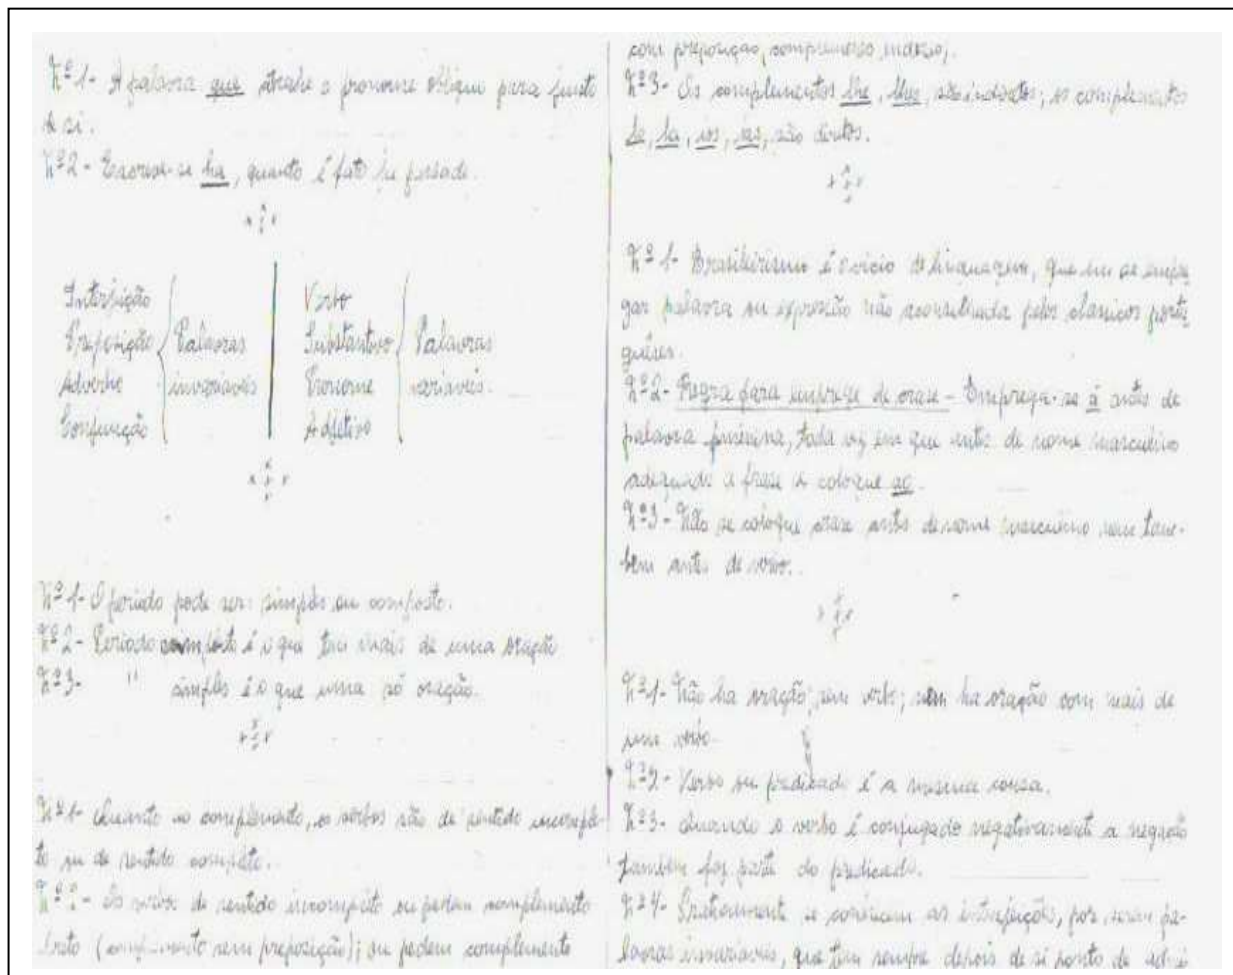 Nº 1- A palavra que atrahe o pronome obliquo para junto
de si.
Nº 2- Escreve-se ha, quanto é fato ju passado.
Interjeição
Preposição
Adverbio
Conjunção
Palavras
invariaveis
Verbo
Substantivo
Pronome
Adjetivo
Palavras
variaveis.
Nº 1- O periodo pode ser: simples ou composto.
Nº 2- Periodo composto é o que tem mais de uma oração
Nº 3- " simples é o que uma só oração.
Nº 1- Quanto ao complemento, os verbos são de sentido incomple-
to ou de sentido completo.
Nº 2- Os verbos de sentido incompleto ou pedem complemento
direto (complemento sem preposição); ou pedem complemento
com preposição, complemento
Nº 3- Os complementos lhe, lhes, são indiretos; os complementos
lo, la, los, las, são diretos.
Nº 1- Brasileirismo é o vicio de linguagem, que em se empre-
gar palavra ou expressão não aconselhada pelos classicos portu-
guêses.
Nº 2- Regra para emprego de crase- Emprega-se à antes de
palavra feminina, toda vez em que antes de nome masculino
adequado a frase se coloque ao.
Nº 3- Não se coloque crase antes de nome masculino nem tam-
bem antes de verbo.
Nº 1- Não ha oração sem verbo; nem ha oração com mais de
um verbo.
Nº 2- Verbo ou predicado é a mesma cousa.
Nº 3- Quando o verbo é conjugado negativamente a negação
tambem faz parte do predicado.
Nº 4- Praticamente se conhecem as interjeições, por serem pa-
lavras invariaveis, que tem sempre depois de si ponto de